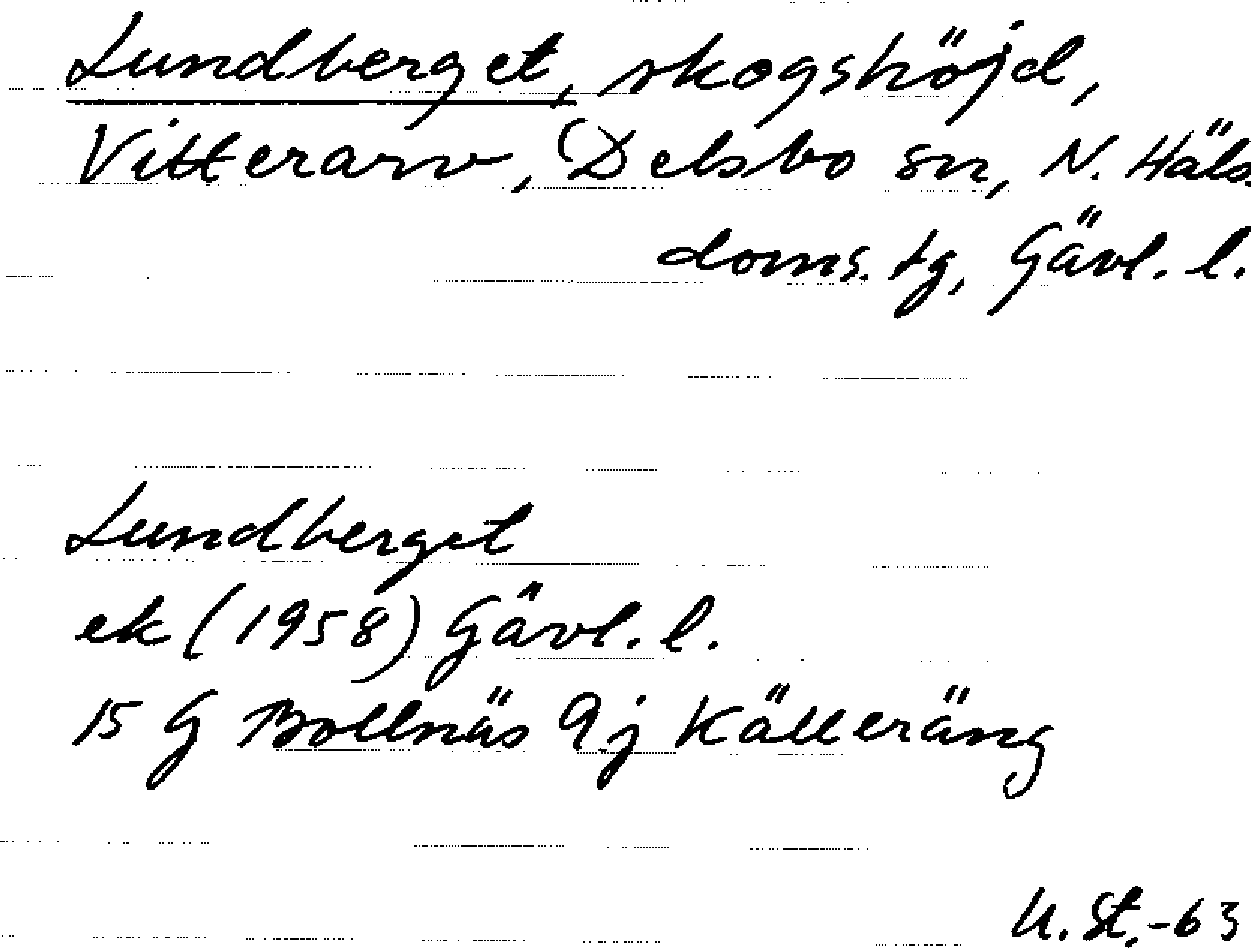 Lundberget, skogshöjd,
Vitterarv, Delsbo sn, N. Häls.
doms. tg, Gävl. l.
Lundberget
ek (1958) Gävl. l.
15 G Bollnäs 9j Källeräng
U. St.-63